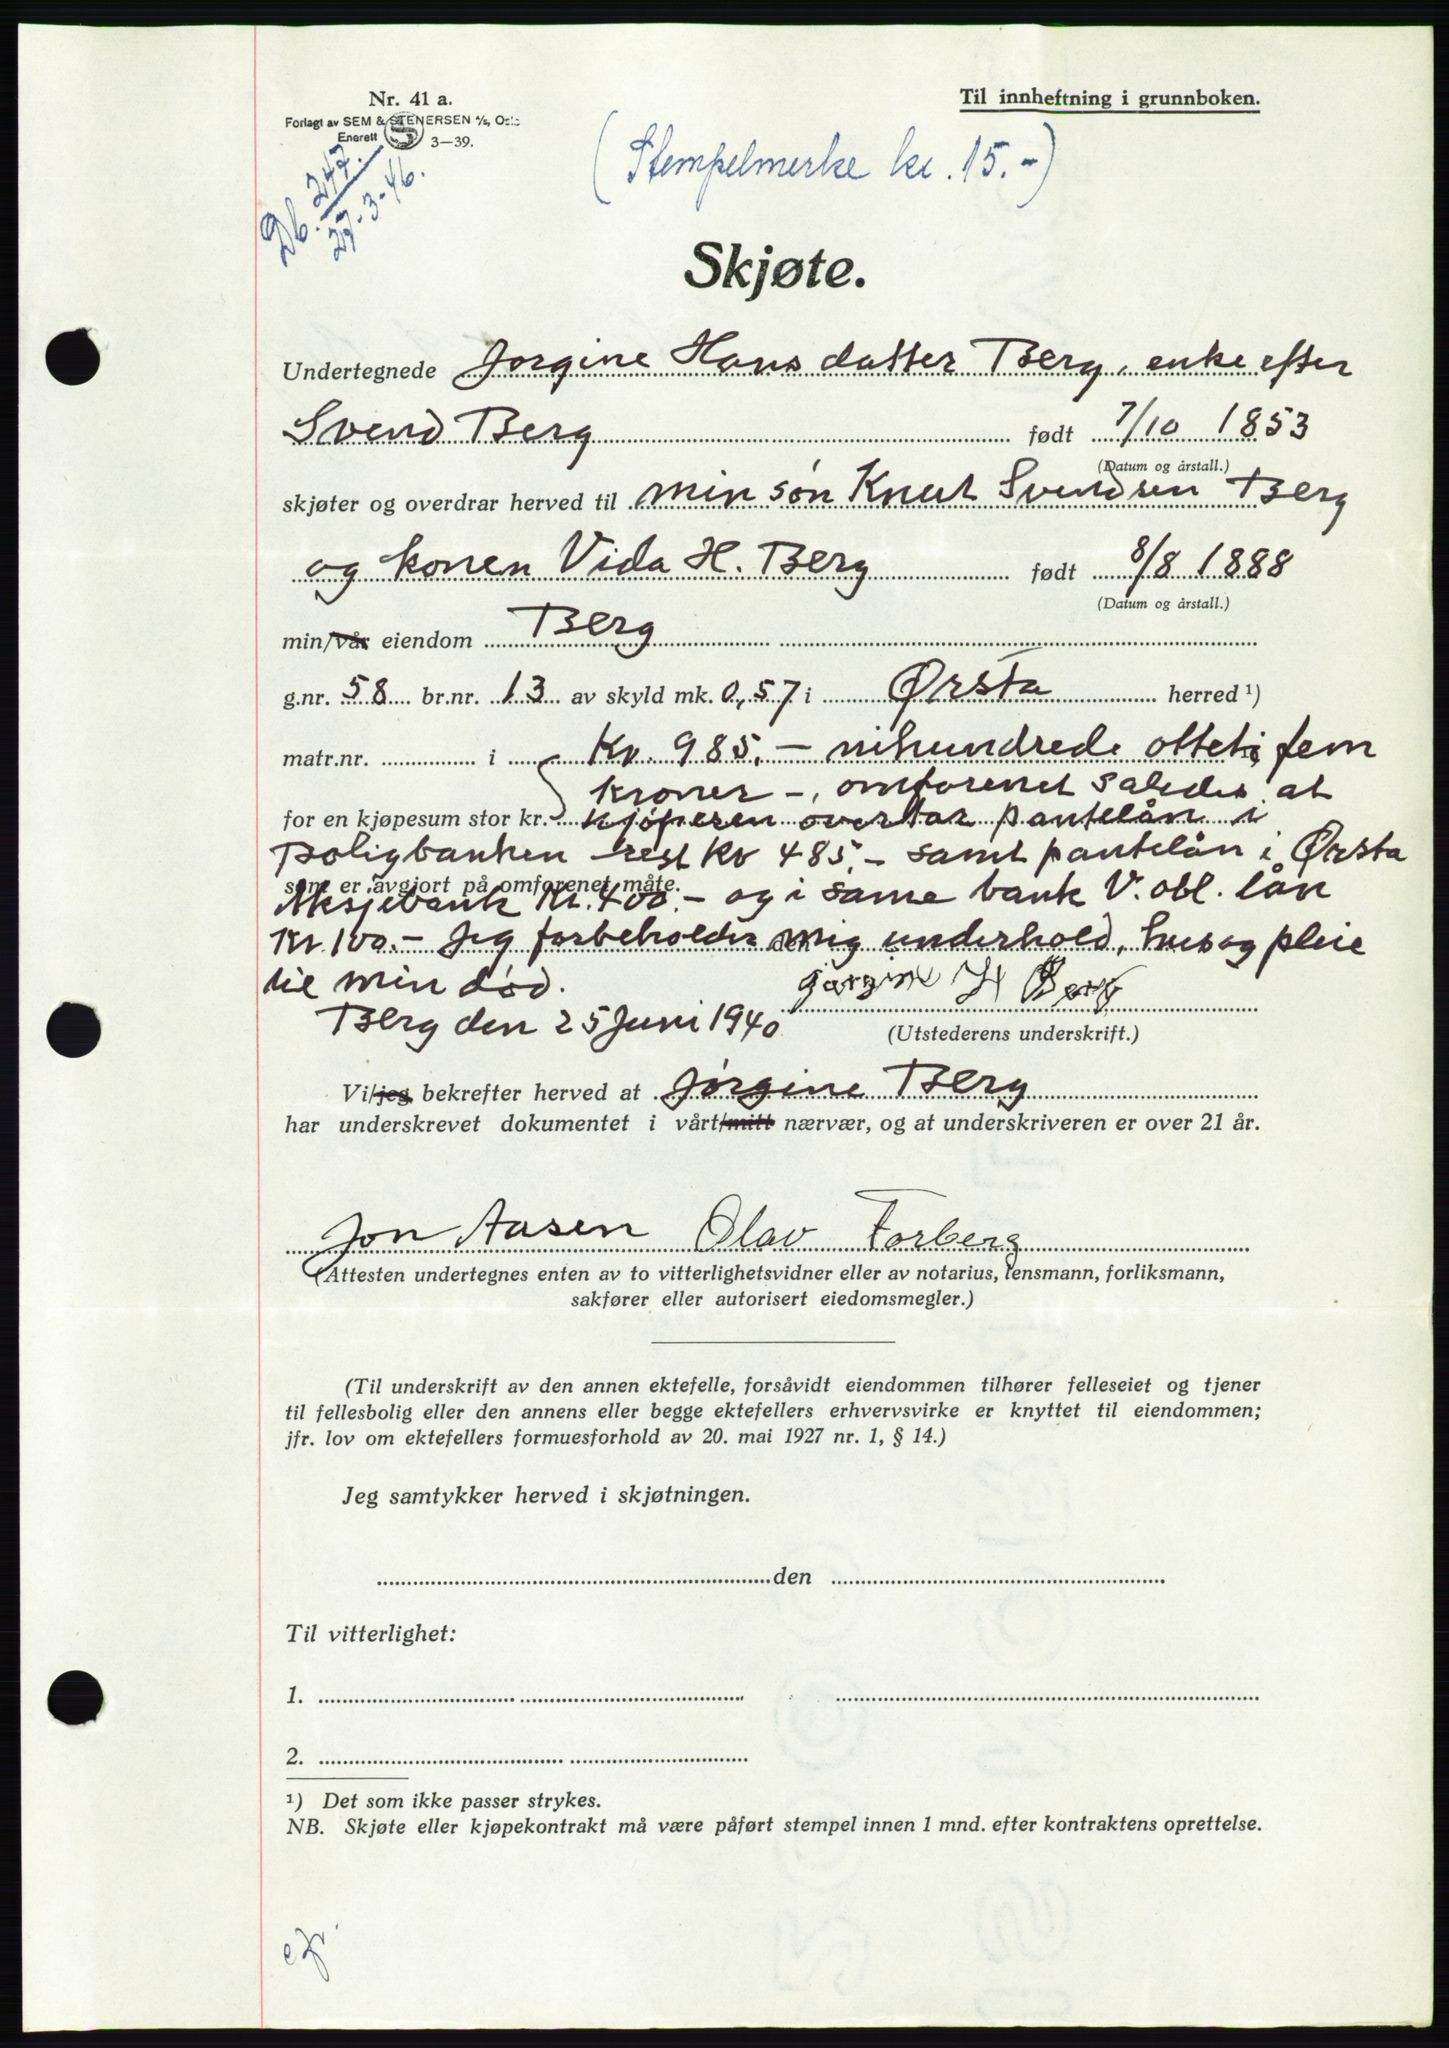 Nr. 41 a.
Forlagt av SEM & STENERSEN A/S, Oslo
Enerett 3—39.
Til innheftning i grunnboken.
Db. 247.
27-3-46.
(Stempelmerke kr. 15.-)
Skjøte.
Undertegnede Jørgine Hansdatter Berg, enke efter
Svend Berg født 7/10 1853
(Datum og årstall.)
skjøter og overdrar herved til min søn Knut Svendsen Berg
og konen Vida H. Berg født 8/8 1888
(Datum og årstall.)
min/vår eiendom Berg
g.nr. 58 br.nr. 13 av skyld mk. 0,57 i Ørsta herred ¹)
matr.nr. i Kr. 985.- nihundrede otteti fem
kroner -, omforenet således at
for en kjøpesum stor kr. kjøperen overtar pantelån i
Boligbanken rest Kr 485.- samt pantelån i Ørsta
som er avgjort på omforenet måte.
Aksjebank Kr. 400.- og i same bank V. obl. lån
Kr. 100.- Jeg forbeholder mig underhold, hus og pleie
til min død.
Jørgine H Berg
Berg den 25 Juni 1940
(Utstederens underskrift.)
Vi/jeg bekrefter herved at Jørgine Berg
har underskrevet dokumentet i vårt/mitt nærvær, og at underskriveren er over 21 år.
Jon Aasen Olav Forberg
(Attesten undertegnes enten av to vitterlighetsvidner eller av notarius, lensmann, forliksmann,
sakfører eller autorisert eiedomsmegler.)
(Til underskrift av den annen ektefelle, forsåvidt eiendommen tilhører felleseiet og tjener
til fellesbolig eller den annens eller begge ektefellers erhvervsvirke er knyttet til eiendommen;
jfr. lov om ektefellers formuesforhold av 20. mai 1927 nr. 1, § 14.)
Jeg samtykker herved i skjøtningen.
den
Til vitterlighet:
1.
2.
¹) Det som ikke passer strykes.
NB. Skjøte eller kjøpekontrakt må være påført stempel innen 1 mnd. efter kontraktens oprettelse.